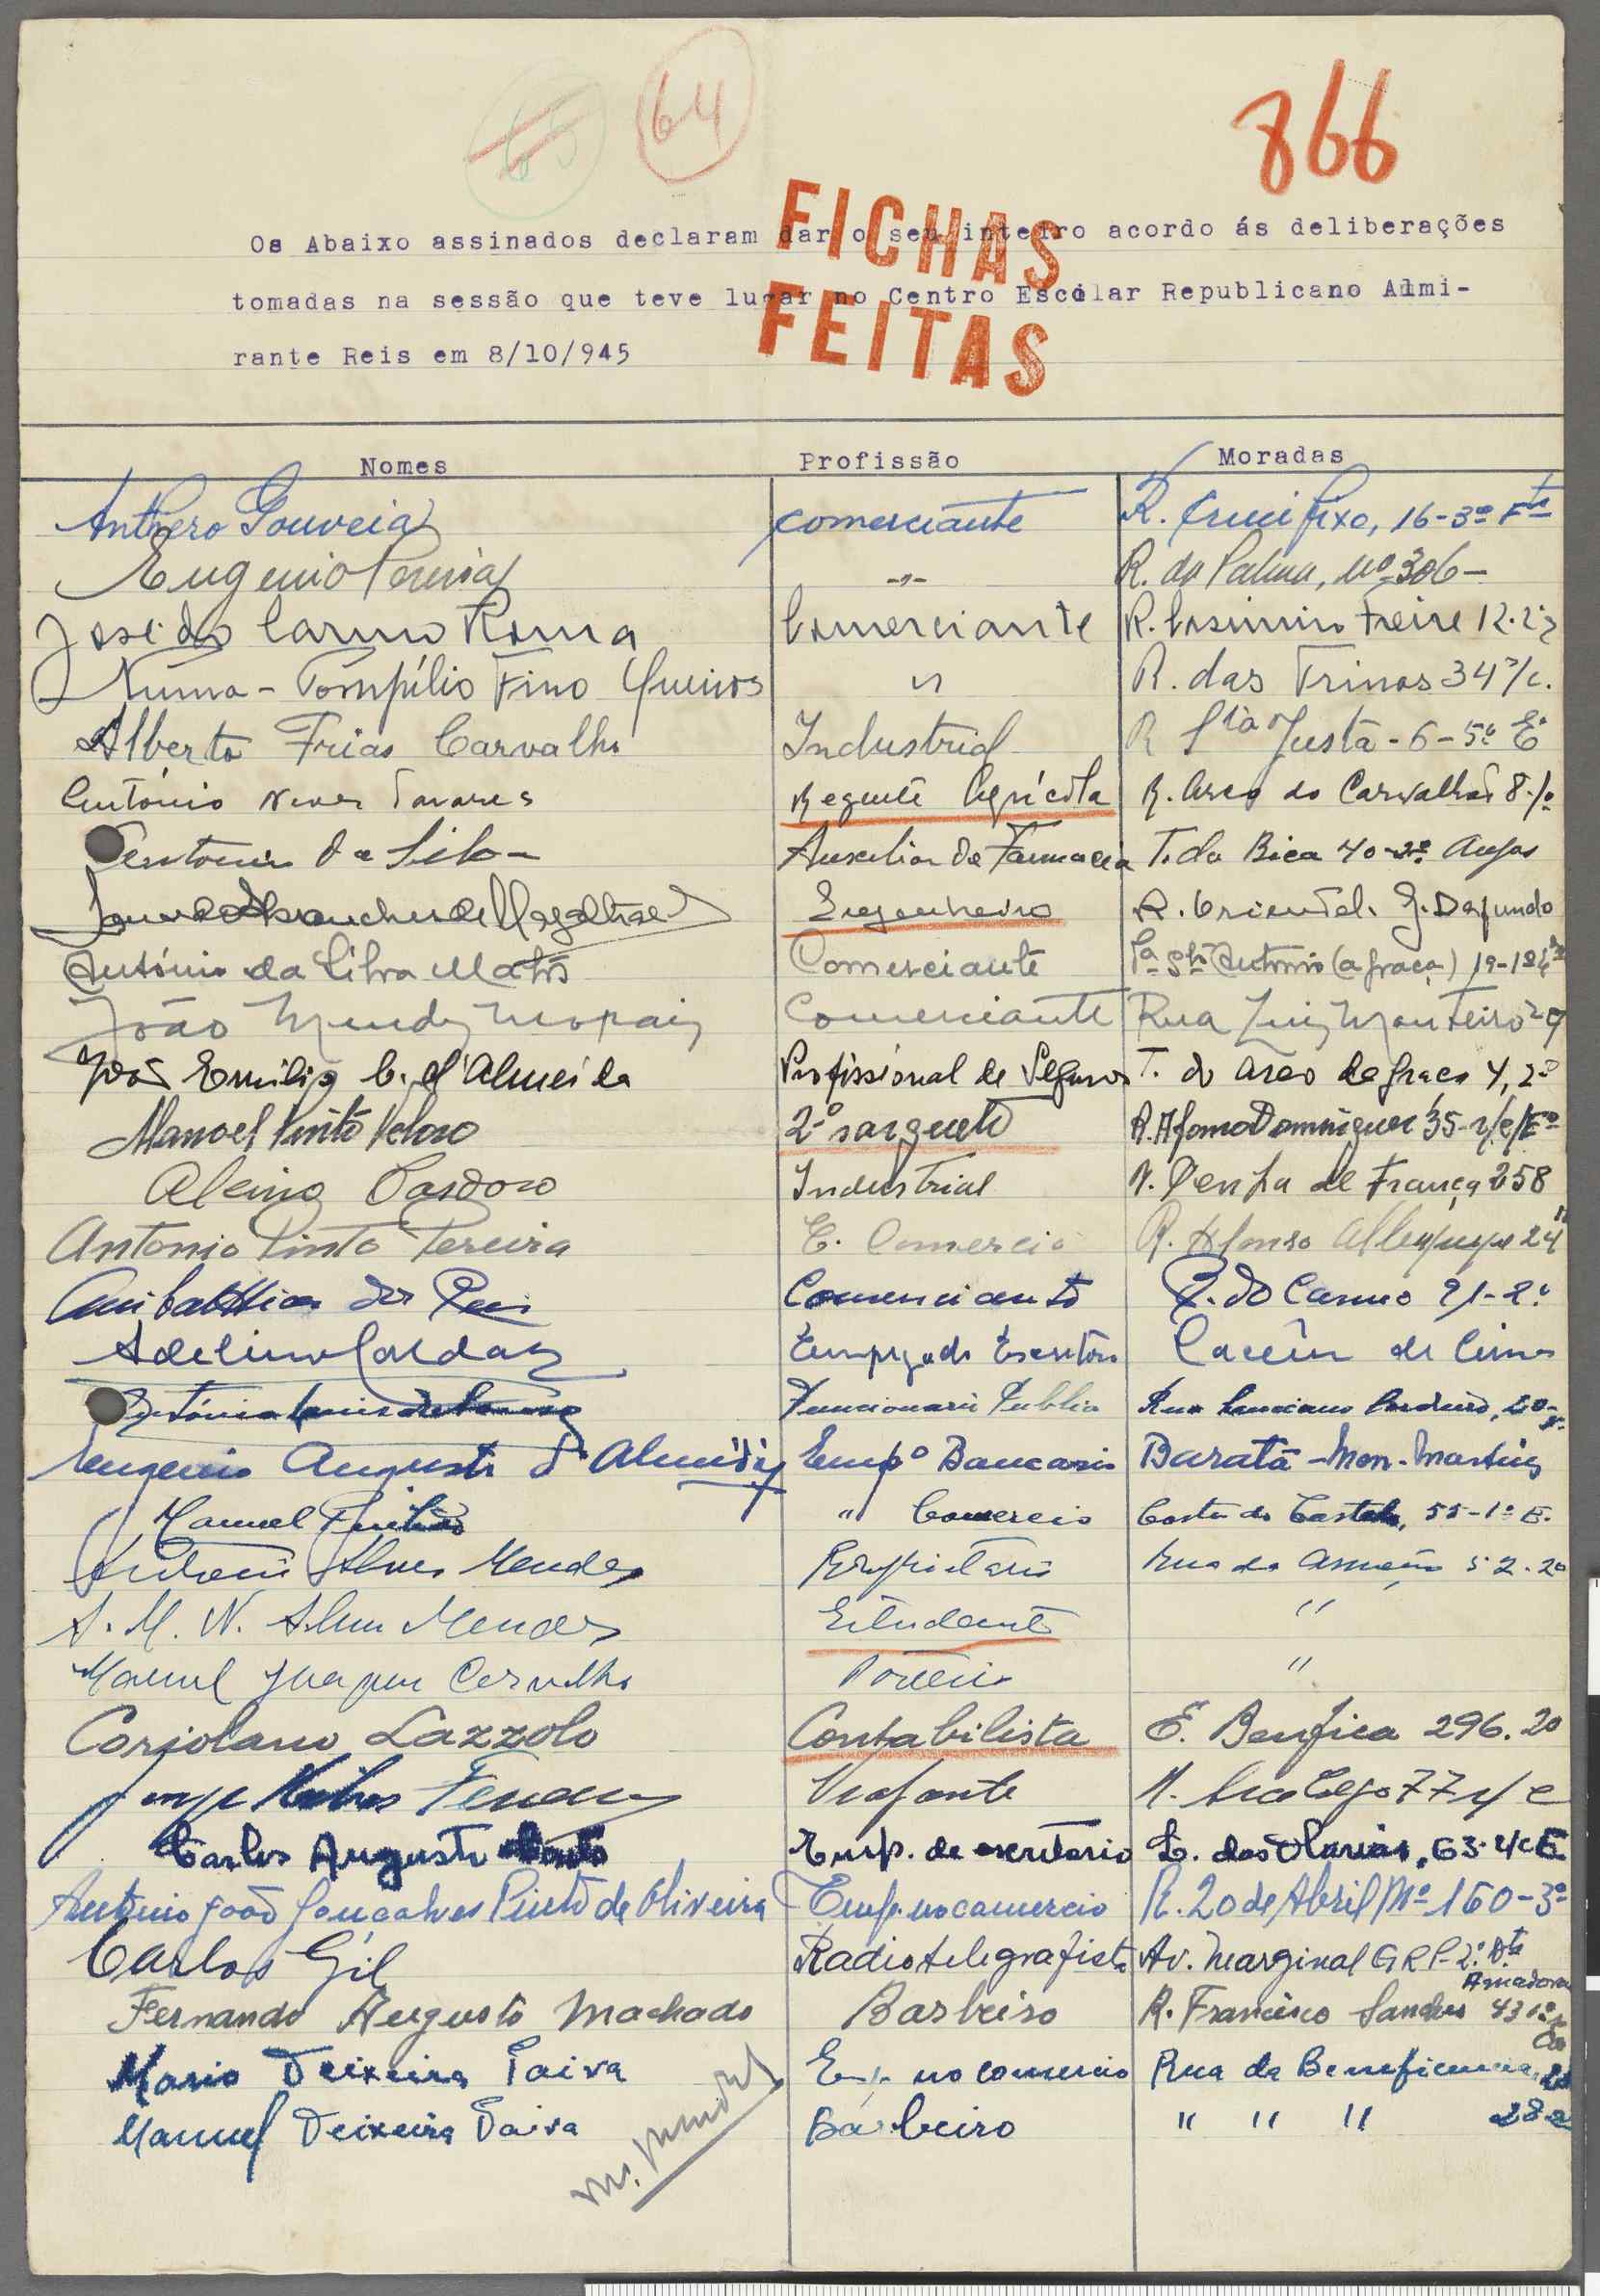 65
64
866
FICHAS
FEITAS
Os Abaixo assinados declaram dar o seu inteiro acordo ás deliberações
tomadas na sessão que teve lugar no Centro Escolar Republicano Almi-
rante Reis em 8/10/945
Nomes Profissão Moradas
Anthero Gouveia comerciante R. Crucifixo, 16-3º Fte
Eugenio Pereira -"- R. da Palma, nº 306-
José do Carmo Roma Comerciante R. Casimiro Freire 12.2º
Numa-Pompílio Fino Queiros " R. das Trinas 34 r/c.
Alberto Frias Carvalho Industrial R Sta Justa-6-5º E.
António Neves Tavares Regente Agrícola R. Arco do Carvalhão 8
da Silva Auxiliar de Farmacia T. da Bica 40-2º Anjos
Abranches de Magalhães Engenheiro R. Oriental Dafundo
António da Silva Matos Comerciante Sto António (a Graça) 19-1º
João Mendes Morais Comerciante Rua Luiz Monteiro 29
João Emilio C. d'Almeida Profissional de Seguros T. do Arco da Graça 4, 2º
Manoel Pinto Veloso 2º sargento R. Afonso Domingues 35-r/c/Eº
Alcino Cardoso Industrial R. Penha de França 258
Antonio Pinto Pereira E. Comercio R. Afonso Albuquerque 24
dos Reis Comerciante R. do Carmo 91-2º
Adelino Caldas Empregado Escritório Cacém de Cima
António Funcionario Publico Rua Luciano Cordeiro, 20-
Eugenio Augusto d'Almeida Empº Bancario Barata-Mem-Martins
Manuel " Comercio Costa do Castelo, 55-1º E.
Antonio Alves Mendes Proprietario Rua da 52.2º
A. M. N. Alves Mendes Estudante "
Manuel Joaquim Carvalho Porteiro "
Coriolano Lazzolo Contabilista E. Benfica 296.2º
Jorge Viajante 77 r/c
Carlos Augusto Couto Emp. de escritorio L. das Olarias, 63-r/c E
Antonio João Gonçalves Pinto de Oliveira Emp. no comercio R. 20 de Abril Nº 160-3º
Carlos Gil Radiotelegrafista Av. Marginal G R P-2º Dto
Amadora
Fernando Augusto Machado Barbeiro R. Francisco Sanches 43 1º
Mario Teixeira Paiva Emp. no comercio Rua da Beneficencia,
Manuel Teixeira Paiva Barbeiro " " " 282